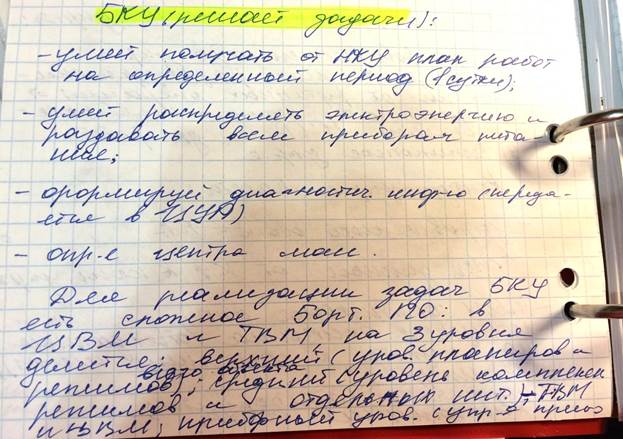 БКУ (решает задачи):
- умеет получать от НКУ план работ
на определенный период (1 сутки);
- умеет распределять электроэнергию и
раздавать всем приборам пита-
ние;
- формирует диагностич. инф-ю (переда-
ётся в ЦУП)
- опр-е центра масс.
Для реализации задач БКУ
есть сложное борт. ПО: в
ЦВМ и ТВМ на 3 уровня
делится: верхний (уров. планиров и
режимов); средний (уровень комплексн
режимов и отдельных инт. ТВМ
и ЦВМ; приборный уров. (упр-е